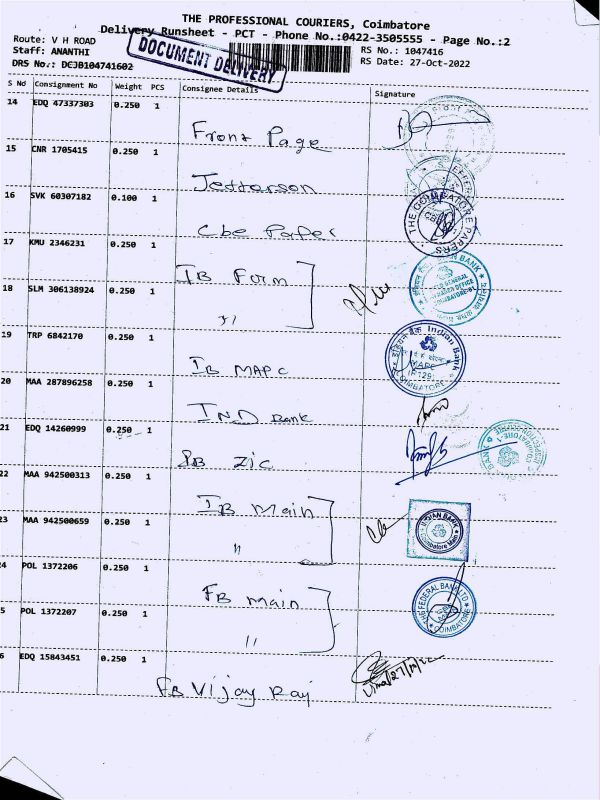 THE PROFESSIONAL COURIERS, Coimbatore
Delivery Runsheet - PCT - Phone No.:0422-3505555 - Page No.:2
Route: V H ROAD
Staff: ANANTHI
DRS No.: DCJB104741602
DOCUMENT DELIVERY
RS No.: 1047416
RS Date: 27-Oct-2022
S No Consignment No Weight PCS Consignee Details Signature
14 EDQ 47337303 0.250 1
Front Page
15 CNR 1705415 0.250 1
Jefferson
16 SVK 60307182 0.100 1
Cbe Paper
THE COIMBATORE PAPERS
17 KMU 2346231 0.250 1
IB Form
18 SLM 306138924 0.250 1
〃
19 TRP 6842170 0.250 1
IB MAPC
Indian Bank
COIMBATORE
20 MAA 287896258 0.250 1
IND Bank
21 EDQ 14260999 0.250 1
IB Zic
22 MAA 942500313 0.250 1
IB Main
INDIAN BANK
Coimbatore Main
23 MAA 942500659 0.250 1
〃
24 POL 1372206 0.250 1
FB main
THE FEDERAL BANK LTD
COIMBATORE
5 POL 1372207 0.250 1
〃
6 EDQ 15843451 0.250 1
FB Vijay Raj